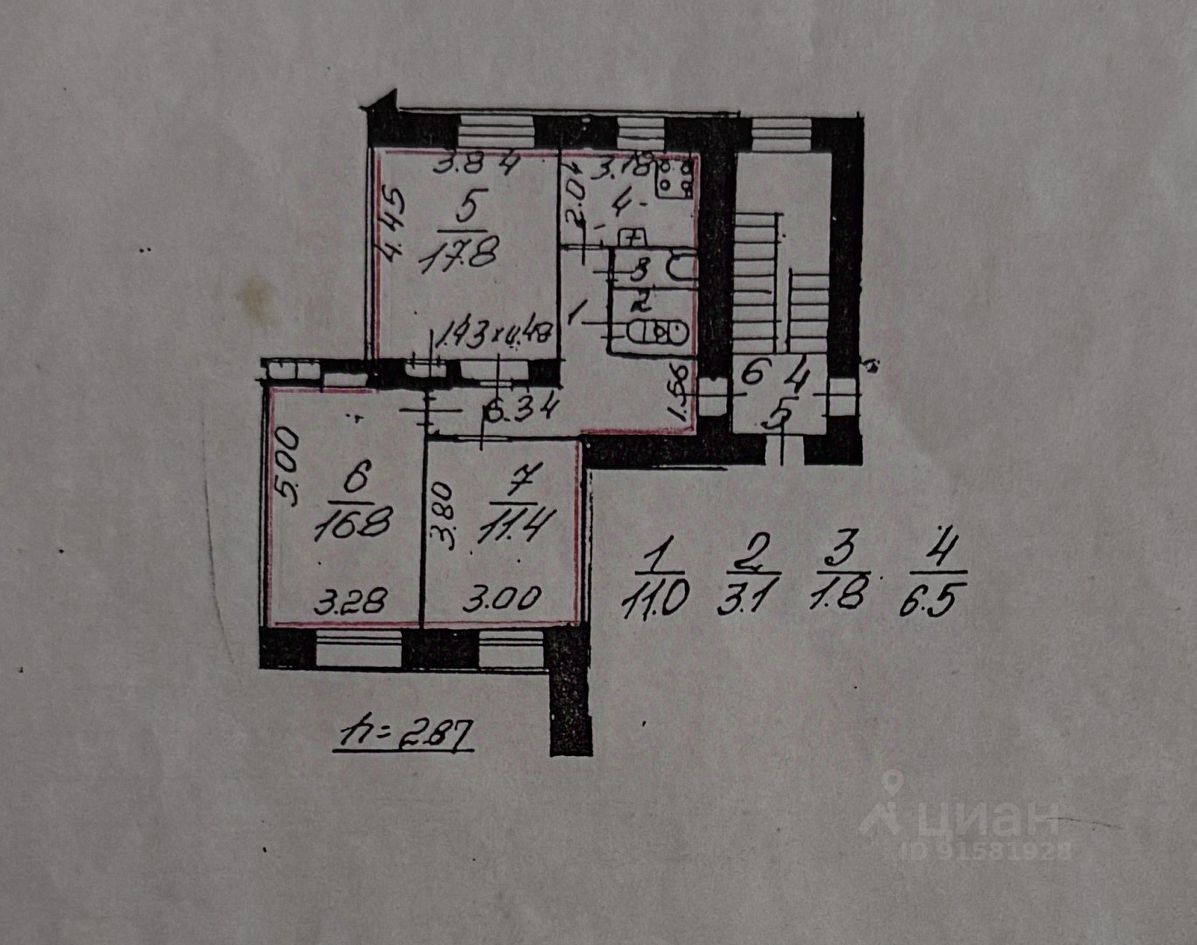 3.84
3.18
2.04
4-
5
17.8
4.45
7
3
2
1
1.43 x 4.48
1.56
6 4
5
6.34
5.00
6
16.8
3.80
7
11.4
3.28
3.00
1
11.0
2
3.1
3
1.8
4
6.5
h=2.87
циан
ID 91581928